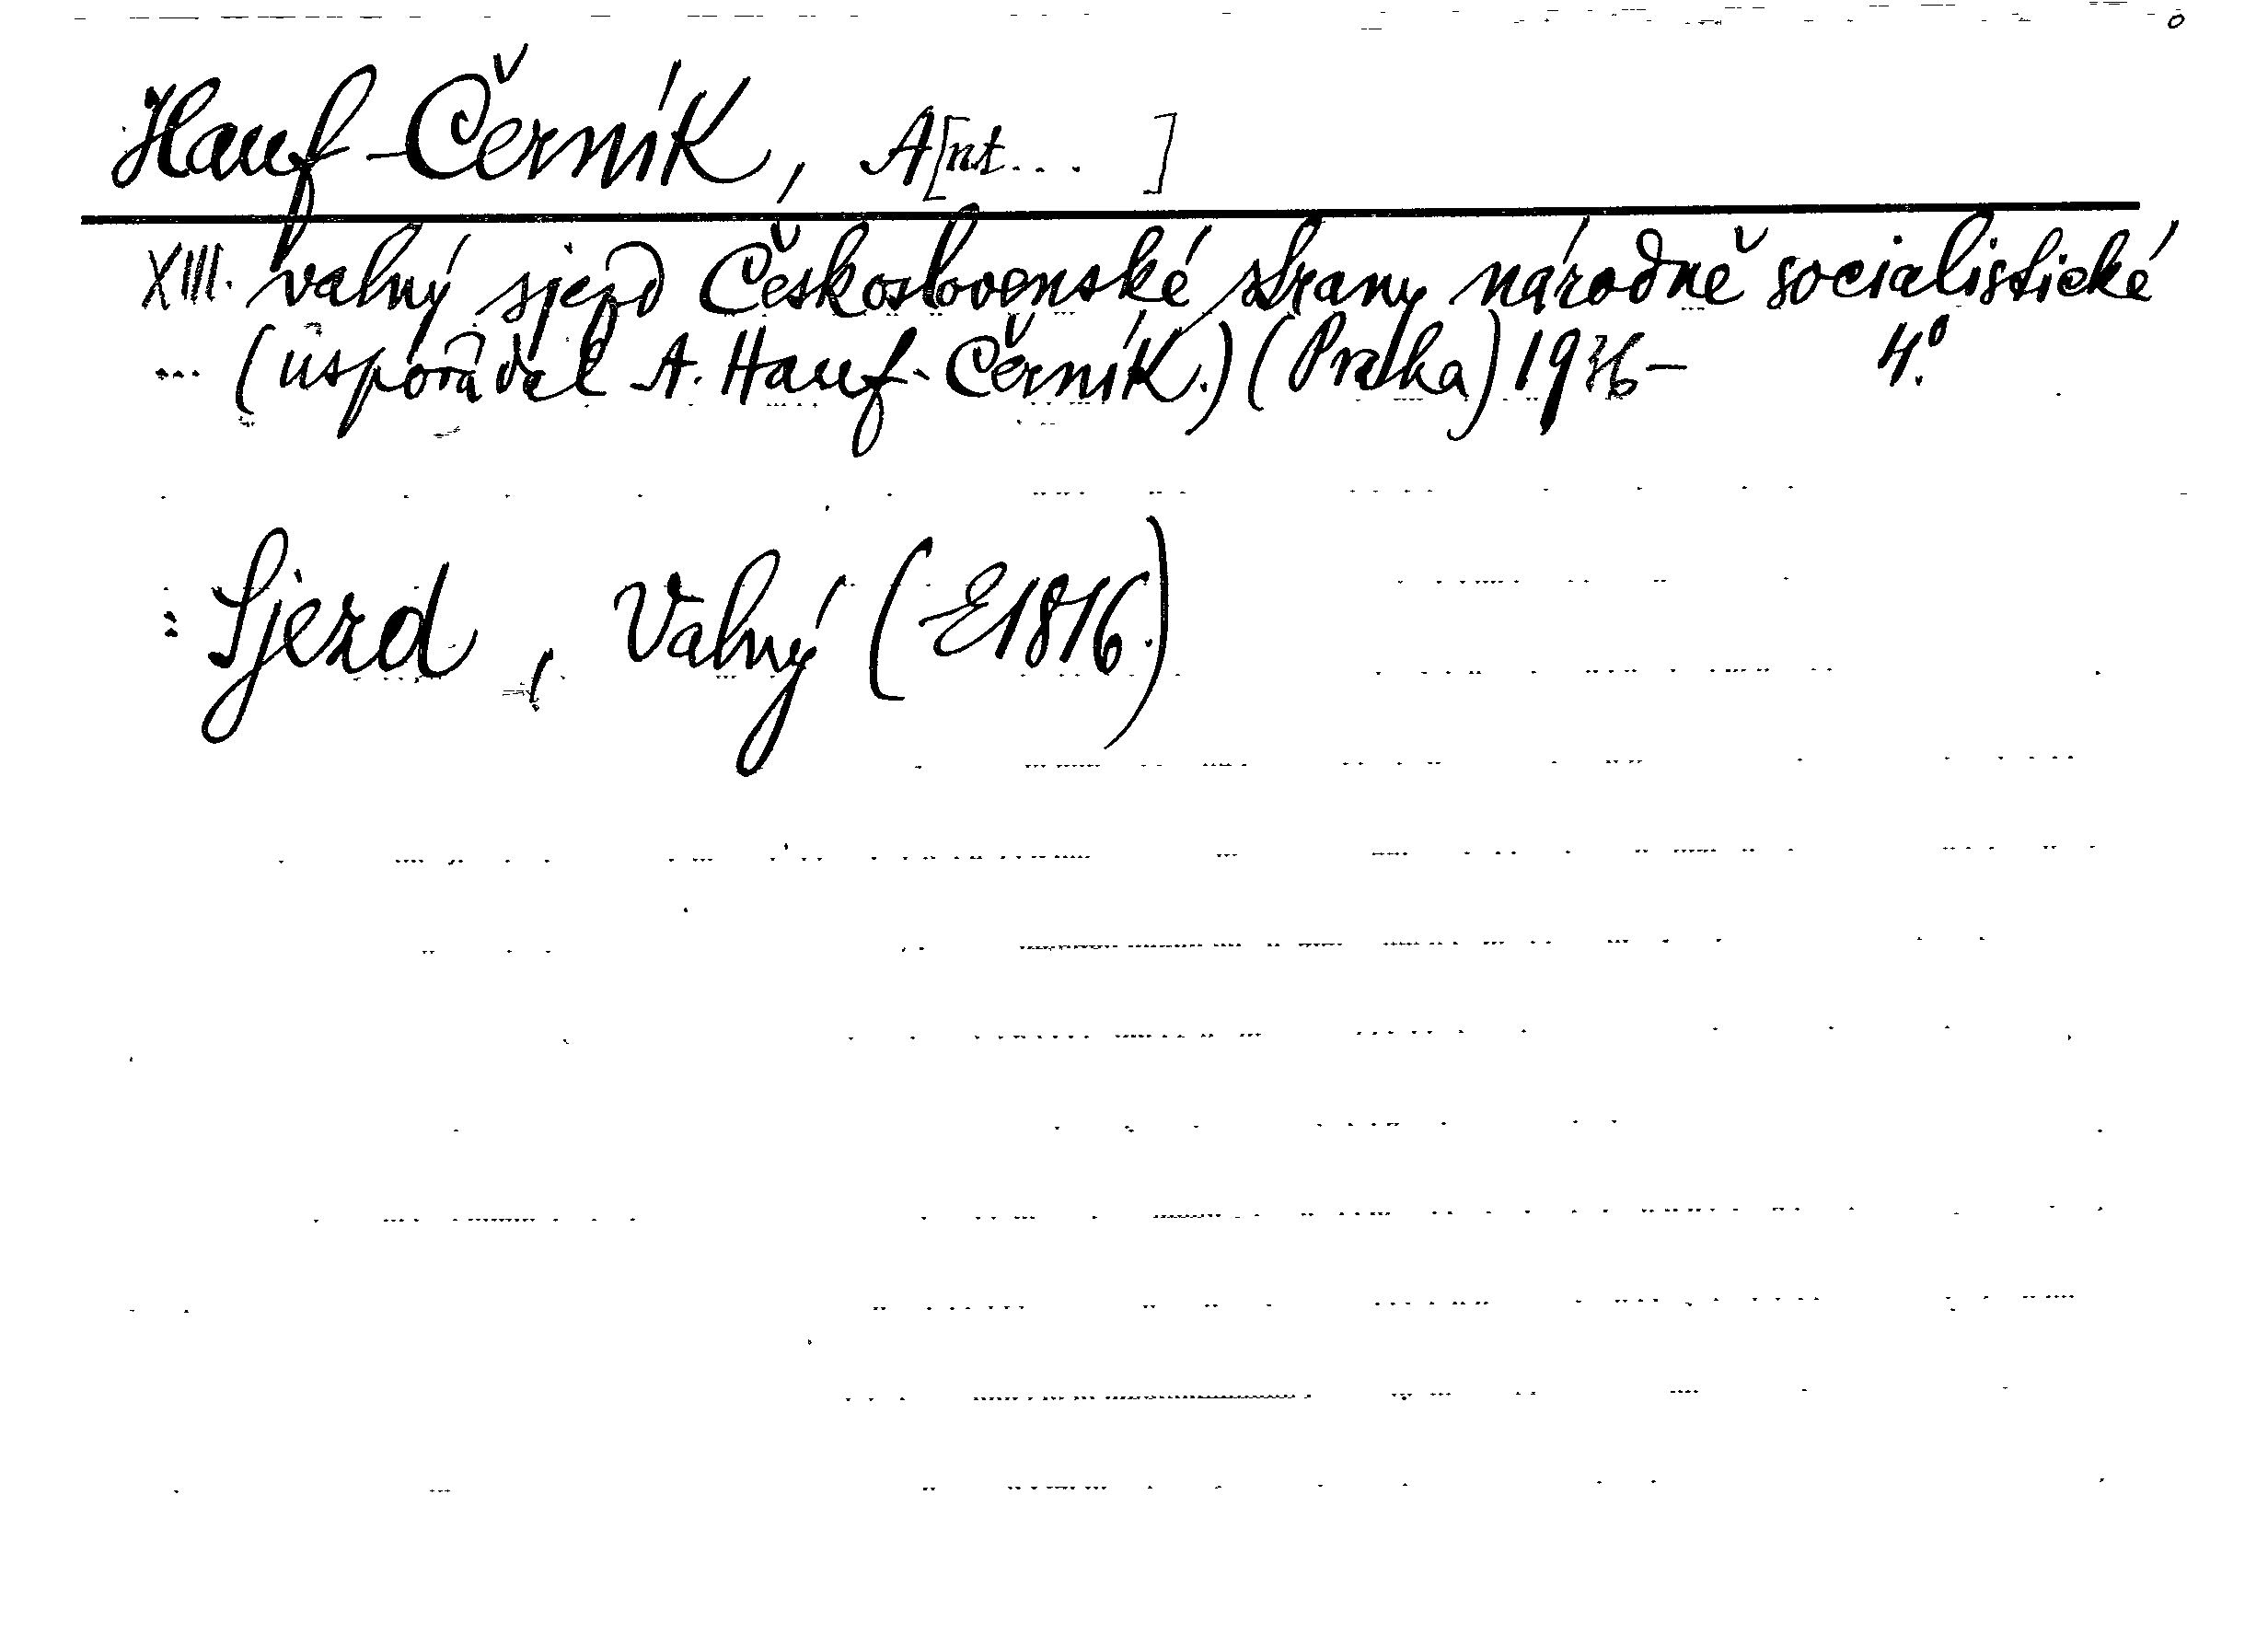 Hauf-Černík, A[nt... ]
XIII. valný sjezd Československé strany národně socialistické
... (uspořádal A. Hauf-Černík.) (Praha) 1936- 4.°
Sjezd, Valný (E1816.)